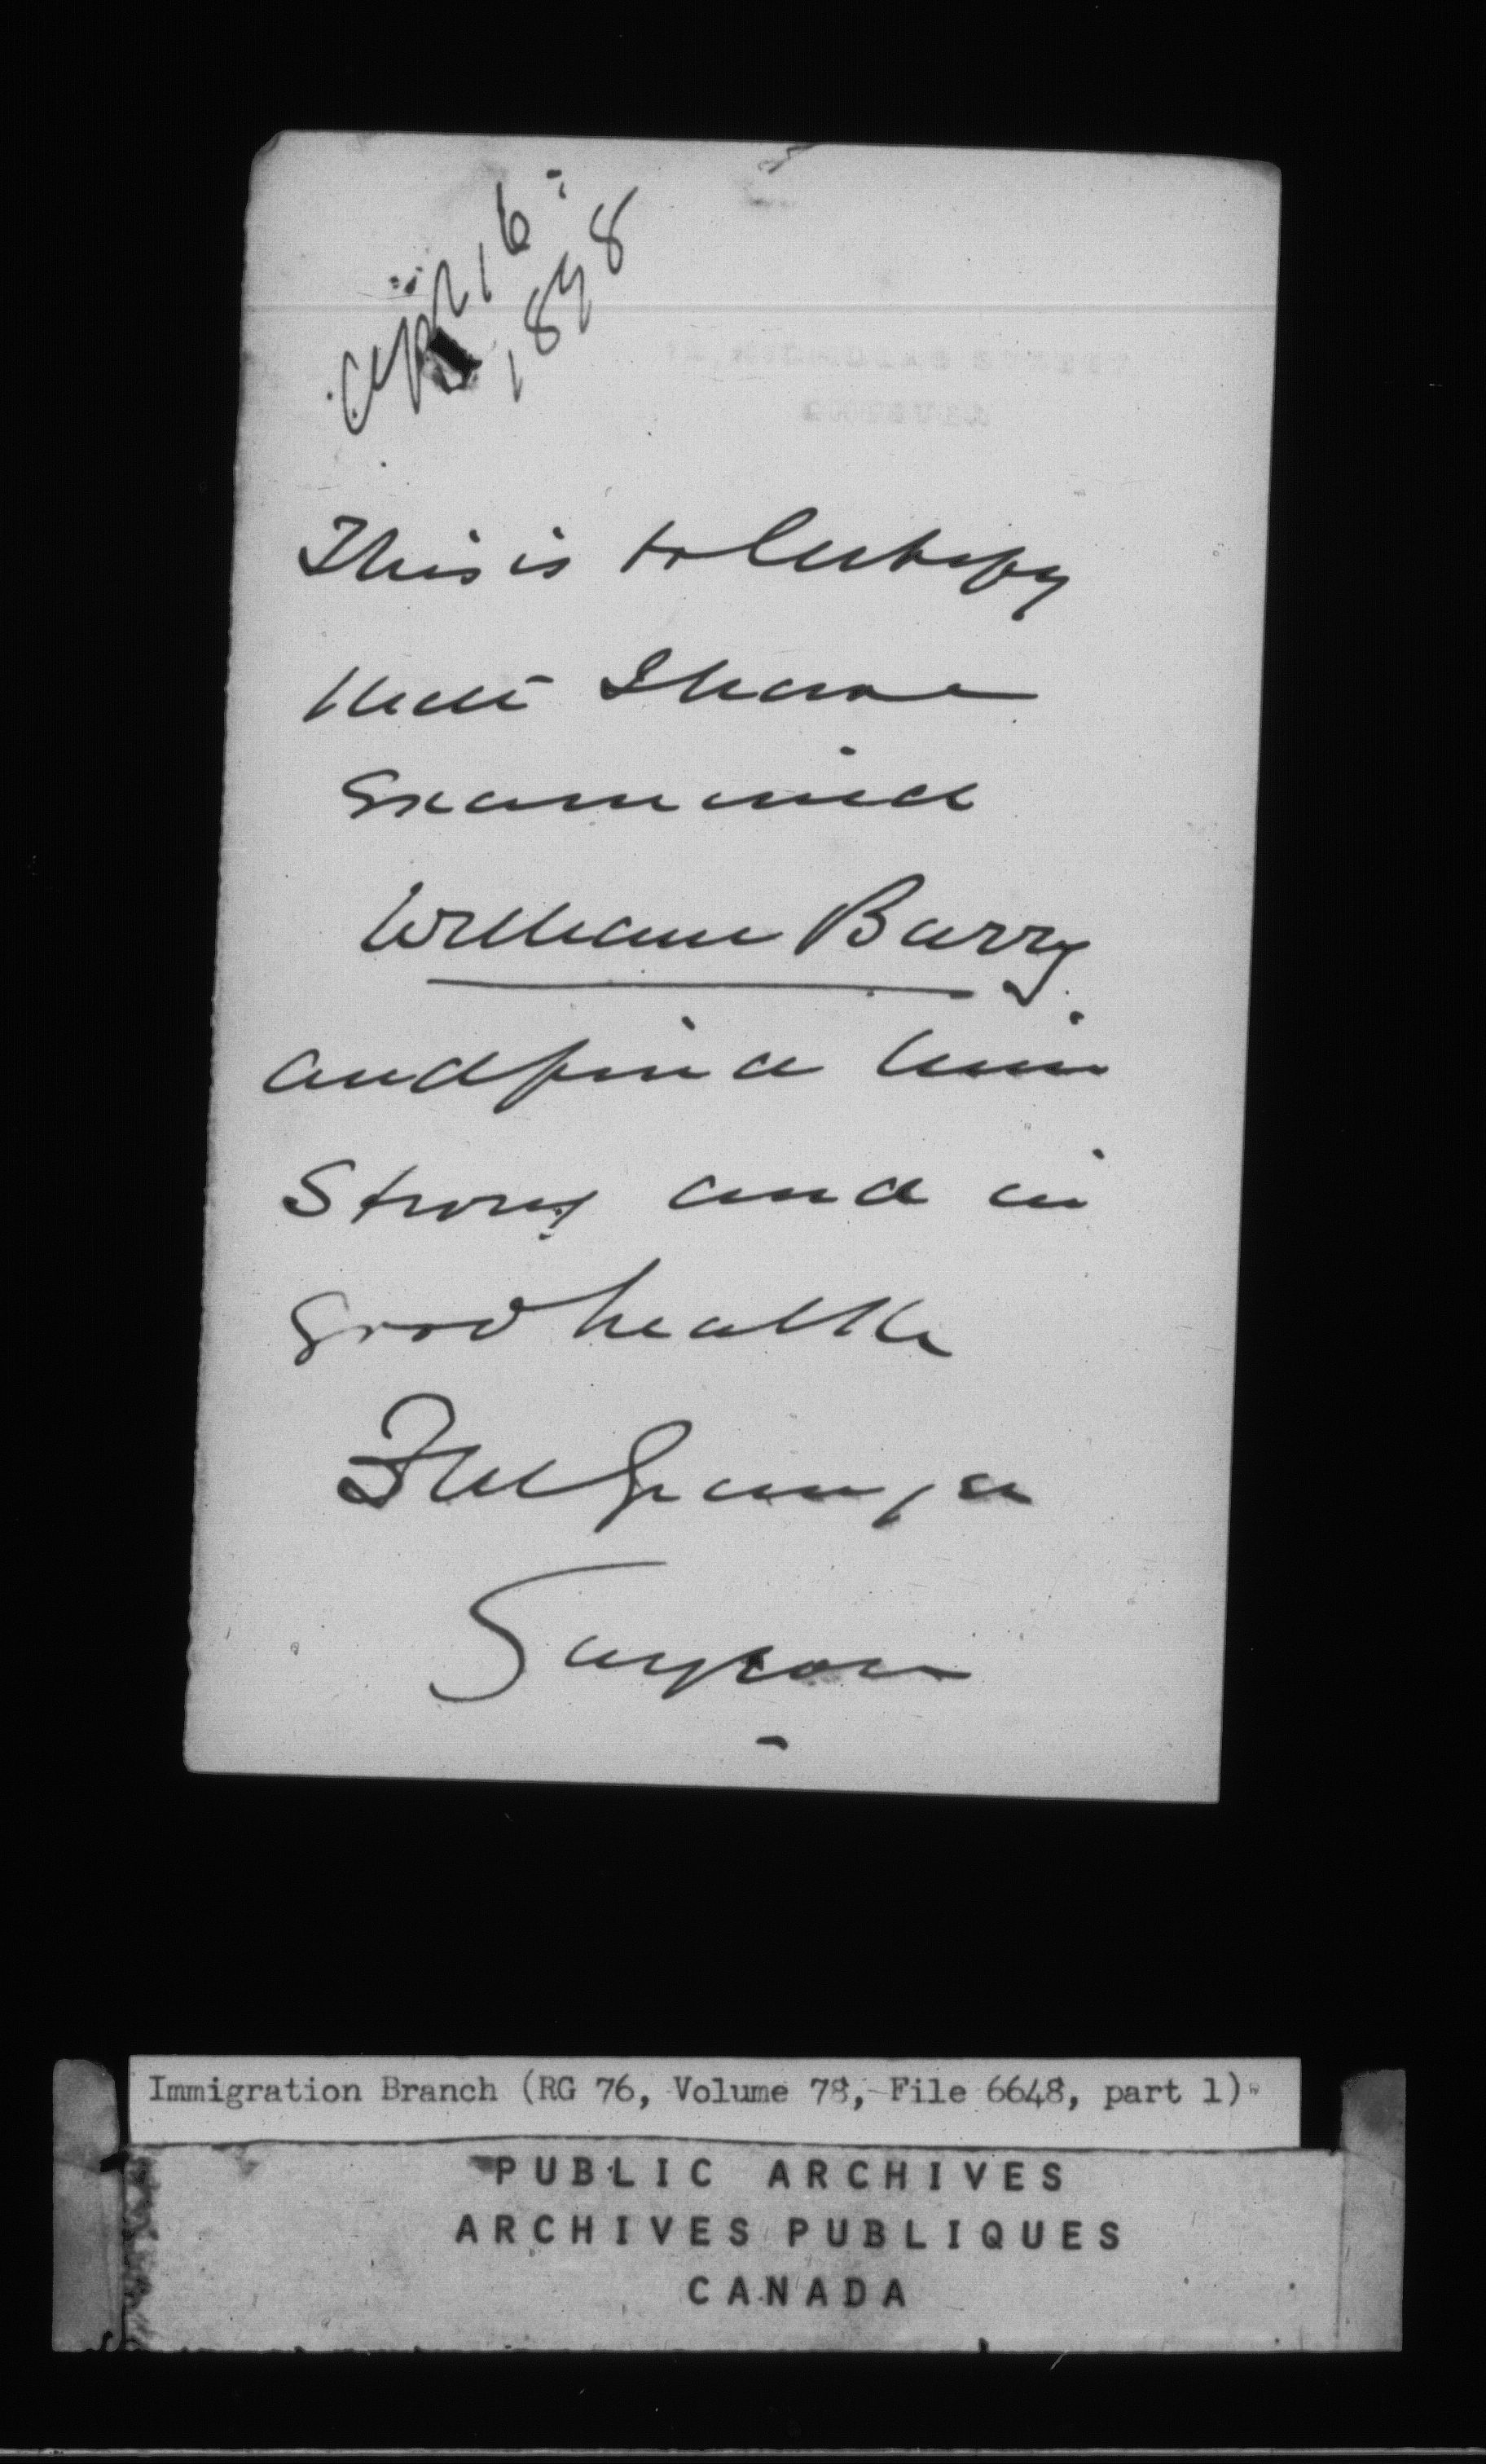 Apr 16
1898
This is to Certify
that I have
Examined
William Barry
and find him
Strong and in
Good health
Surgeon
Immigration Branch (RG 76, Volume 78, File 6648, part 1)
PUBLIC ARCHIVES
ARCHIVES PUBLIQUES
CANADA